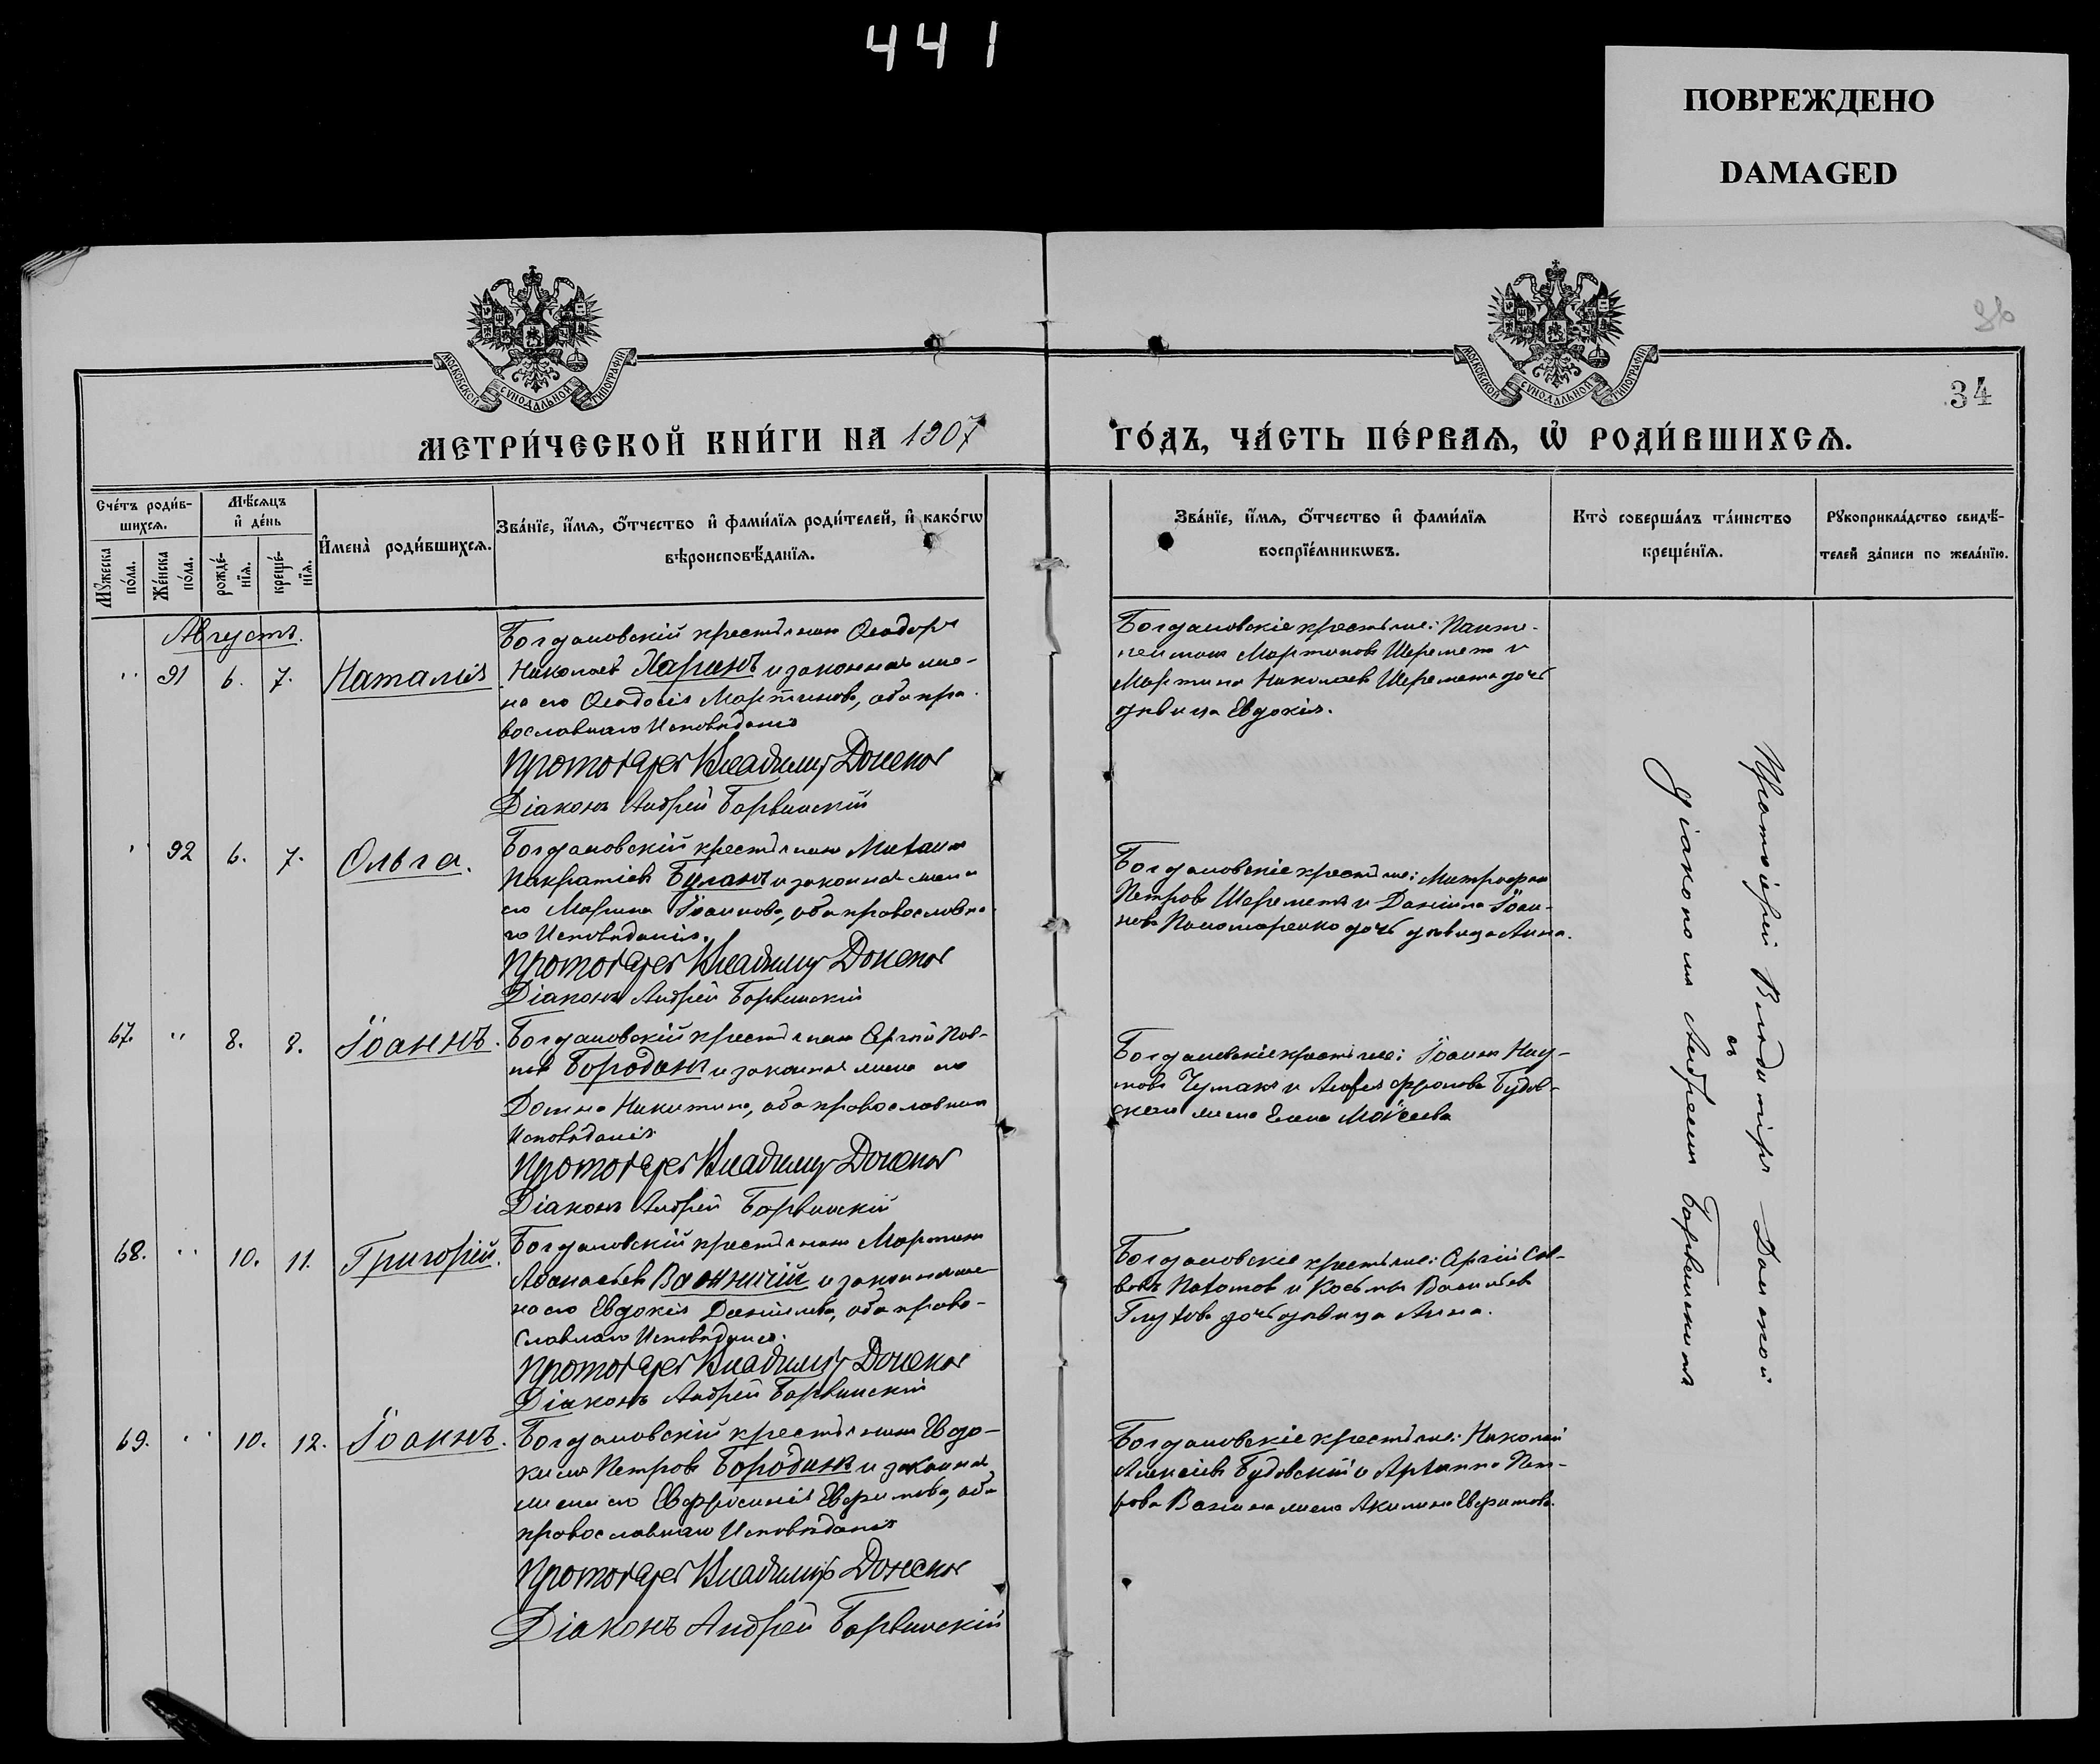 441
ПОВРЕЖДЕНО
DAMAGED
36
34
МОСКОВСКОЙ СѴНОДАЛЬНОЙ ТИПОГРАФІИ
МОСКОВСКОЙ СѴНОДАЛЬНОЙ ТИПОГРАФІИ
МЕТРИ́ЧЕСКОЙ КНИ́ГИ НА 1907
ГО́ДЪ, ЧА́СТЬ ПЕ́РВАѦ, Ѡ҆ РОДИ́ВШИХСѦ.
Сче́тъ роди́в-
шихсѧ.
Мꙋ́жеска по́ла.
Же́нска по́ла.
Мѣ́сѧцъ
и҆ де́нь
рожде́-
нїѧ.
креще́-
нїѧ.
И҆мена̀ роди́вшихсѧ.
Зва́нїе, и҆́мѧ, ѻ҆́тчество и҆ фами́лїѧ роди́телей, и҆ како́гѡ
вѣроисповѣ́данїѧ.
Зва́нїе, и҆́мѧ, ѻ҆́тчество и҆ фами́лїѧ
воспрїе́мникѡвъ.
Кто̀ соверша́лъ та́инство
креще́нїѧ.
Рꙋкоприкла́дство свидѣ́-
телей за́писи по жела́нїю.
Августъ.
" 91 6. 7. Наталія
Богдановскій крестьянинъ Ѳеодоръ
Николаевъ Харинъ и законная же-
на его Ѳеодосія Мартинова, оба пра-
вославнаго Исповѣданія
Протоіерей Владиміръ Донской
Діаконъ Андрей Борвинскій
Богдановскіе крестьяне: Панте-
леимонъ Мартиновъ Шереметъ и
Мартина Николаева Шеремета дочь
дѣвица Евдокія.
" 92 6. 7. Ольга.
Богдановскій крестьянинъ Михаилъ
Панкратіевъ Буланъ и законная жена
его Марина Іоаннова, оба православна-
го Исповѣданія.
Протоіерей Владиміръ Донской
Діаконъ Андрей Борвинскій
Богдановскіе крестьяне: Митрофанъ
Петровъ Шереметъ и Даніила Іоан-
нова Пономаренко дочь дѣвица Анна.
67. " 8. 8. Іоаннъ.
Богдановскій крестьянинъ Сергій Пав-
ловъ Бородинъ и законная жена его
Домна Никитина, оба православнаго
Исповѣданія
Протоіерей Владиміръ Донской
Діаконъ Андрей Борвинскій
Богдановскіе крестьяне: Іоаннъ Нау-
мовъ Чумакъ и Фролова Будов-
скаго жена Елена Моѵсеева
68. " 10. 11. Григорій.
Богдановскій крестьянинъ Мартинъ
Аѳанасьевъ и законная же-
на его Евдокія Даніилова, оба право-
славнаго Исповѣданія.
Протоіерей Владиміръ Донской
Діаконъ Андрей Борвинскій
Богдановскіе крестьяне: Сергій Сав-
вовъ Пахомовъ и Косьмы Васильева
Глухова дочь дѣвица Анна.
69. " 10. 12. Іоаннъ.
Богдановскій крестьянинъ Евдо-
кимъ Петровъ Бородинъ и законная
жена его Евфросинія Евфимова, оба
православнаго Исповѣданія
Протоіерей Владиміръ Донской
Діаконъ Андрей Борвинскій
Богдановскіе крестьяне: Николай
Алексіевъ Будовскій и Архиппа Пет-
рова жена Акилина Евфимова.
Протоіерей Владиміръ Донской
съ
діакономъ Андреемъ Борвинскимъ